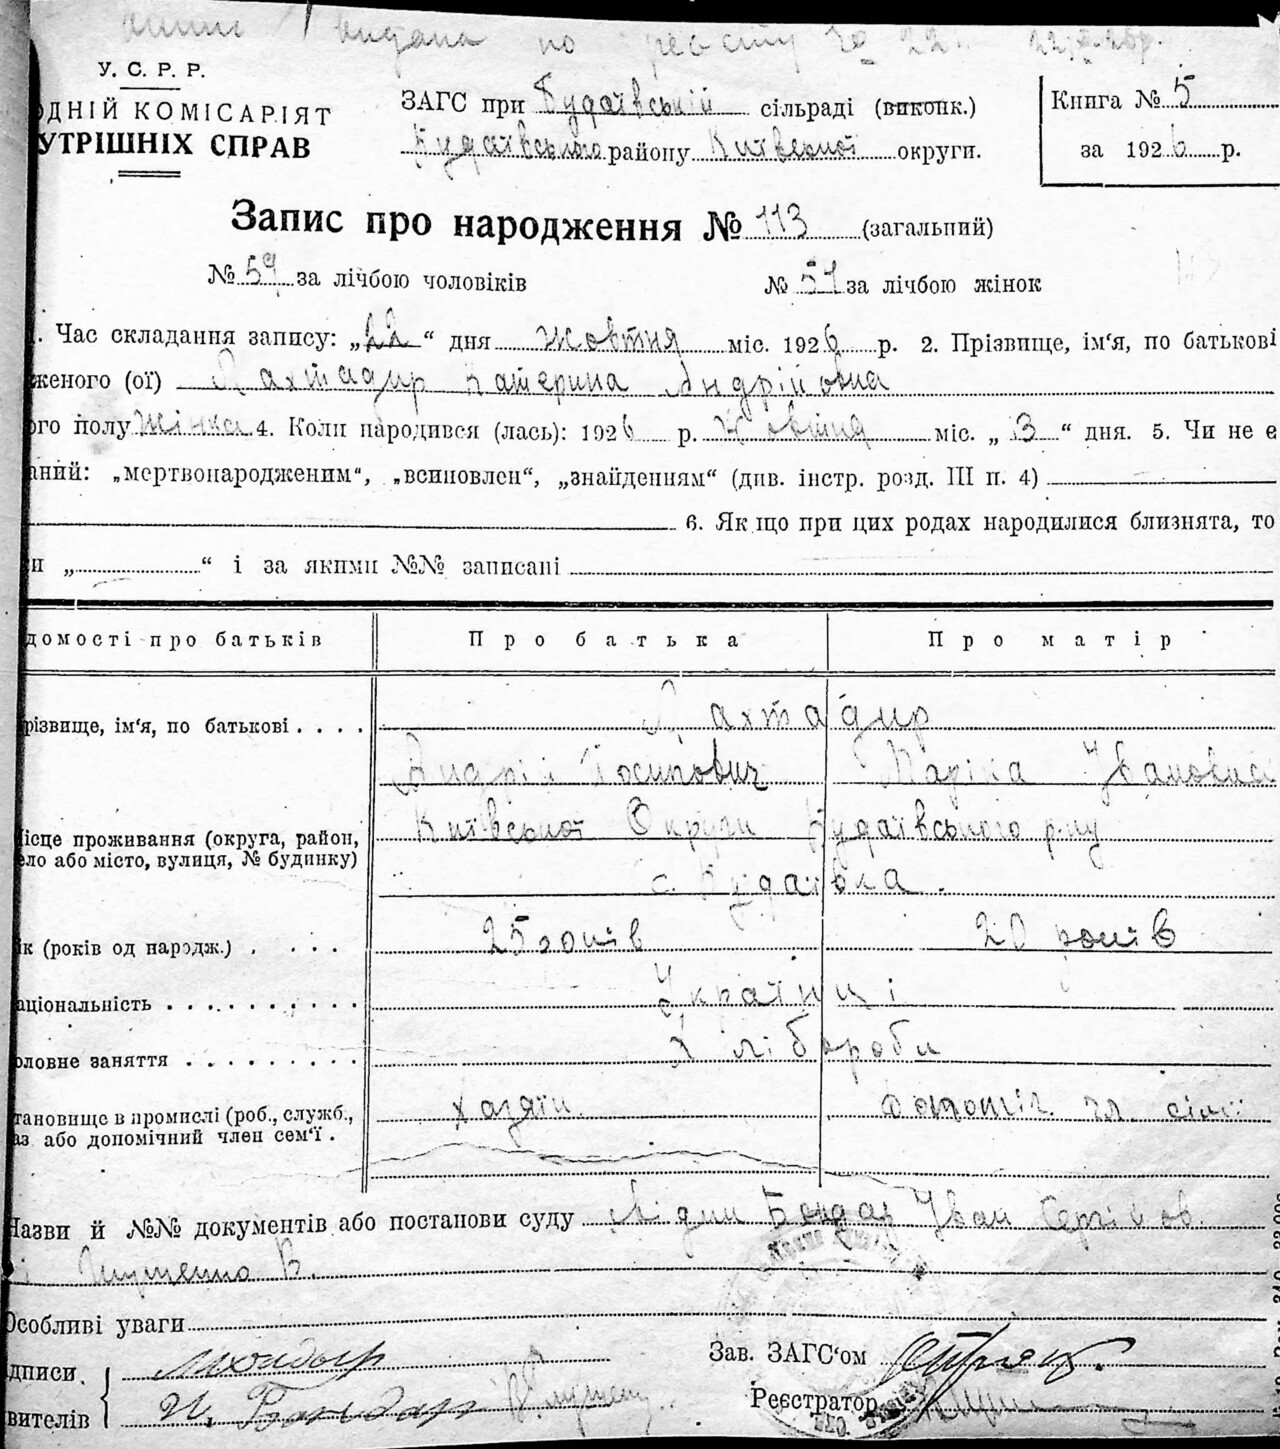 видана по реєстру за 22
У. С. Р. Р.
ОДНІЙ КОМІСАРІЯТ
УТРІШНІХ СПРАВ
ЗАГС при Будаївській сільраді (виконк.)
Будаївського району Київської округи.
Книга № 5
за 1926 р.
Запис про народження № 113 (загальний)
№ 59 за лічбою чоловіків № 54 за лічбою жінок
1. Час складання запису: „22“ дня жовтня міс. 1926 р. 2. Прізвище, ім'я, по батькові
женого (ої) Лахтадир Катерина Андріївна
ого полу Жінка 4. Коли народився (лась): 1926 р. Жовтня міс. „3“ дня. 5. Чи не є
аний: „мертвонародженим“, „всиновлен“, „знайденням“ (див. інстр. розд. III п. 4)
6. Якщо при цих родах народилися близнята, то
и „ “ і за якими №№ записані
домості про батьків Про батька Про матір
різвище, ім'я, по батькові . . . . Лахтадир
Андрій Йосипович Марія Івановна
ісце проживання (округа, район, Київської Округи Будаївського р-ну
ело або місто, вулиця, № будинку)
с. Будаївка.
ік (років од народж.) . . . . 25 років 20 років
аціональність . . . . . . . . . . Українці
оловне заняття . . . . . . . . . Хлібороби
тановище в промислі (роб., служб., Хазяїн допоміг. чл. сімї
аз або допомічний член сем'ї .
Назви й №№ документів або постанови суду свідки Бондар Іван Сергійов.
і В.
Особливі уваги
дписи
явителів
И. Бондар
Зав. ЗАГС'ом
Реєстратор